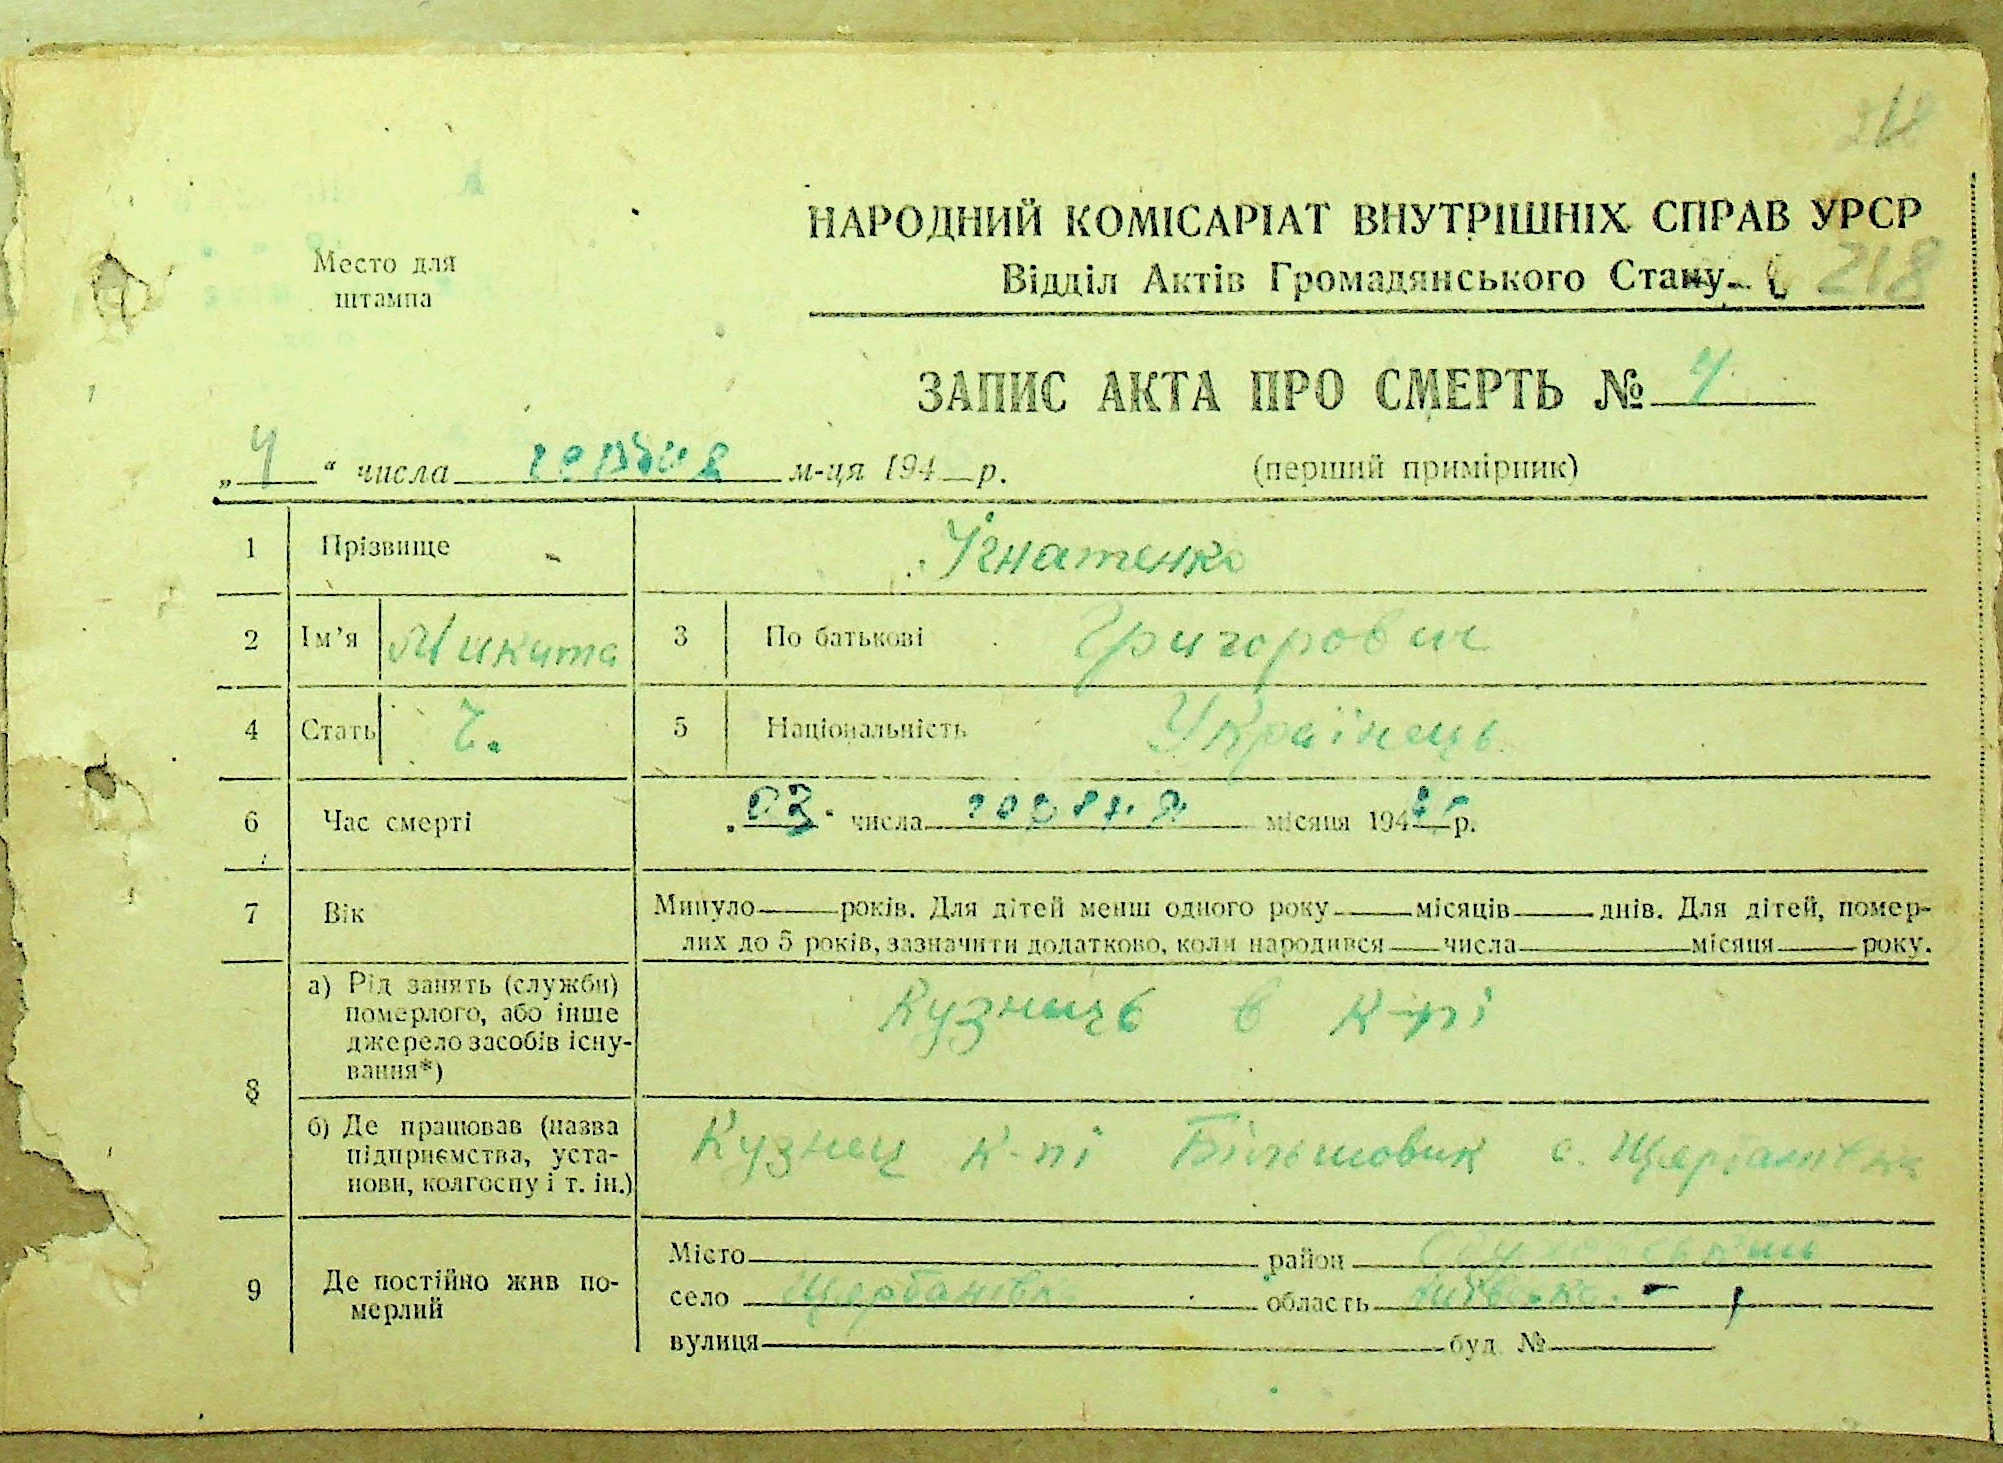 218
НАРОДНИЙ КОМІСАРІАТ ВНУТРІШНІХ СПРАВ УРСР
Місто для
штампа
Відділ Актів Громадянського Стану
ЗАПИС АКТА ПРО СМЕРТЬ № 4
„4“ числа червня м-ця 194 р. (перший примірник)
1 Прізвище Ігнатенко
2 Ім’я Микита 3 По батькові Григорович
4 Стать Ч. 5 Національність Українець
6 Час смерті 03 числа червня місяця 194 р.
7 Вік Минуло років. Для дітей менш одного року місяців днів. Для дітей, помер-
лих до 5 років, зазначити додатково, коли народився числа місяця року.
8 а) Рід занять (служби)
померлого, або інше
джерело засобів існу-
вання*)
Кузнець в к-пі
б) Де працював (назва
підприємства, уста-
нови, колгоспу і т. ін.)
Кузнец к-пі Більшовик с. Щербанівка
9 Де постійно жив по-
мерлий
Місто район
село Щербанівка область Київська
вулиця буд. №